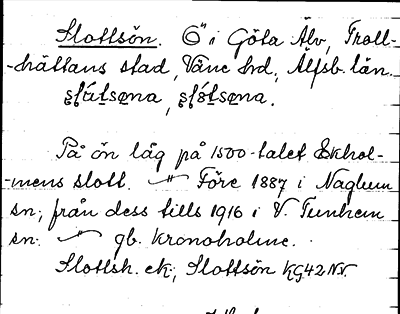 Slottsön. Ö i Göta Älv, Troll-
-hättans stad, Väne hd, Älfsb. län.
På ön låg på 1500-talet Ekhol-
-mens slott. —"— Före 1887 i Naglum
sn; från dess tills 1916 i V. Tunhem
sn. —"— gb. Kronoholme.
Slottsh. ek; Slottsön KG42NV.